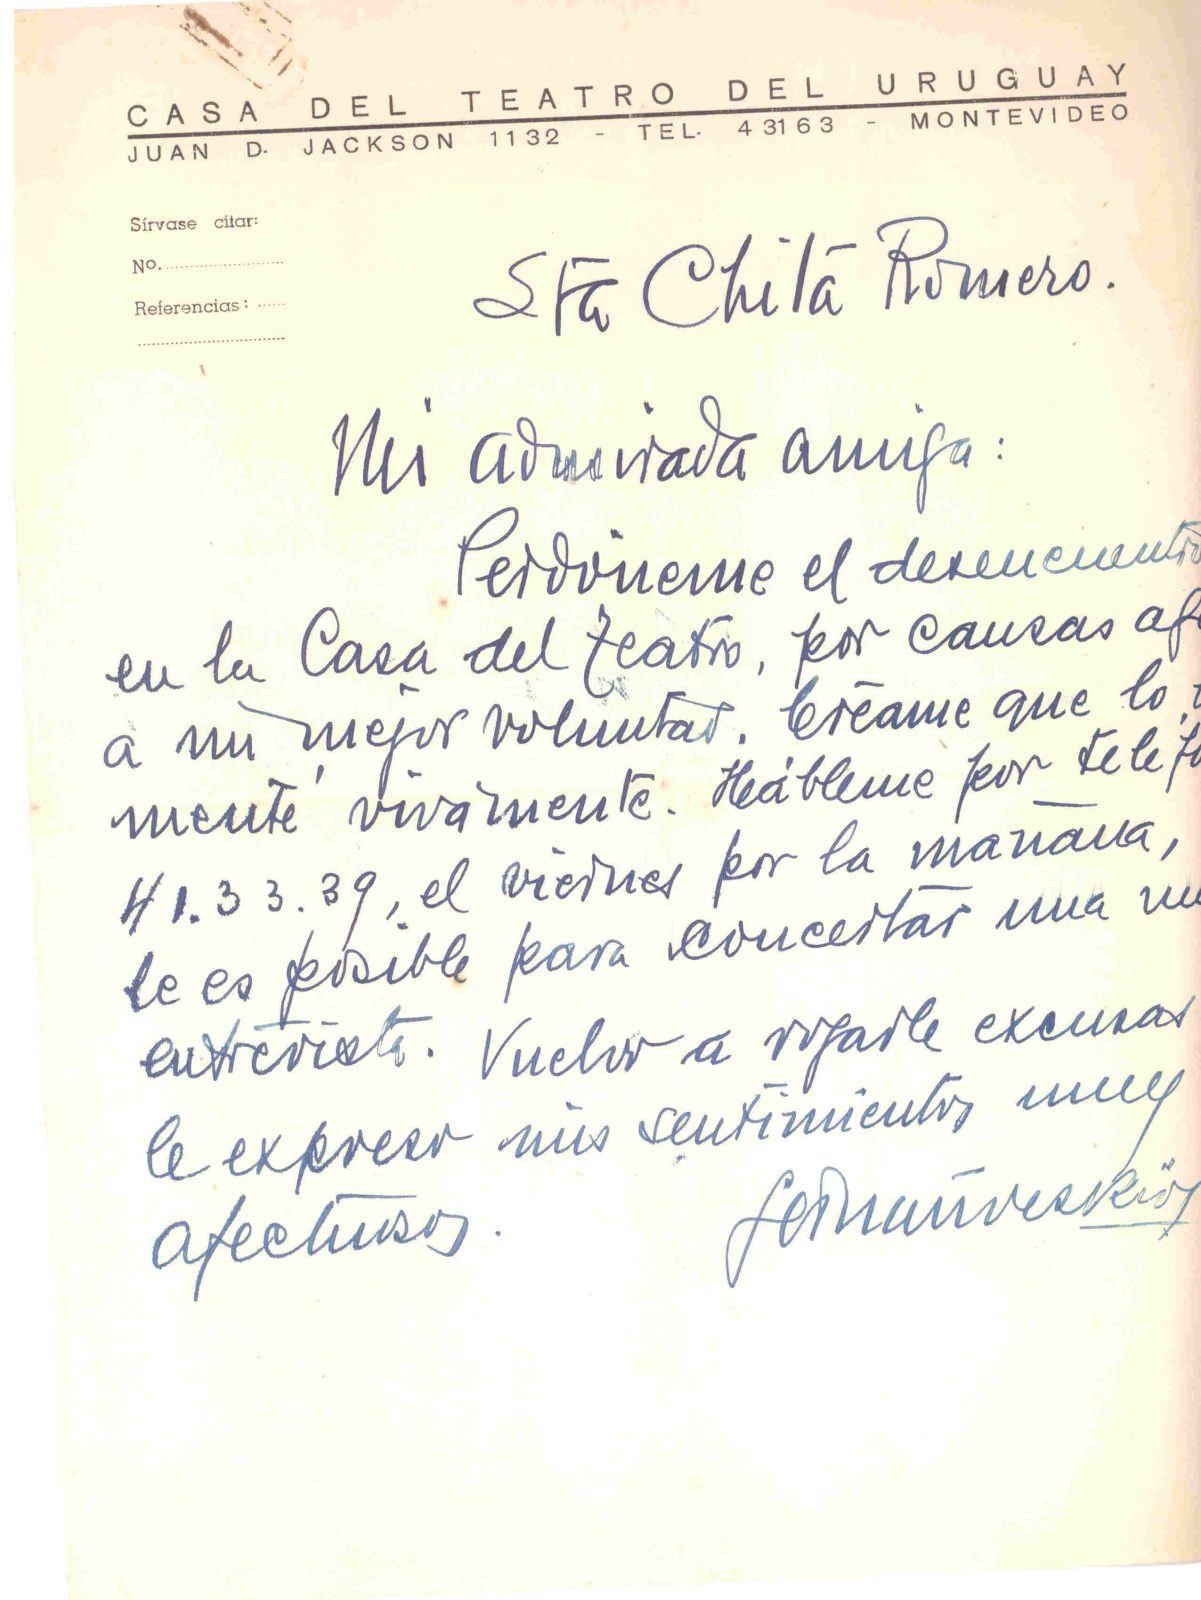 CASA DEL TEATRO DEL URUGUAY
JUAN D. JACKSON 1132 - TEL. 4 31 63 - MONTEVIDEO
Sírvase citar:
No.
Referencias:
Sta Chita Romero.
Mi admirada amiga:
Perdóneme el desencuentro
en la Casa del Teatro, por causas
a mi mejor voluntad. Créame que lo
mente vivamente. Hábleme por teléfo
41.33.39, el viernes por la mañana,
le es posible para concertar una nu
entrevista. Vuelvo a rogarle excusas
le expreso mis sentimientos muy
afectuosos.